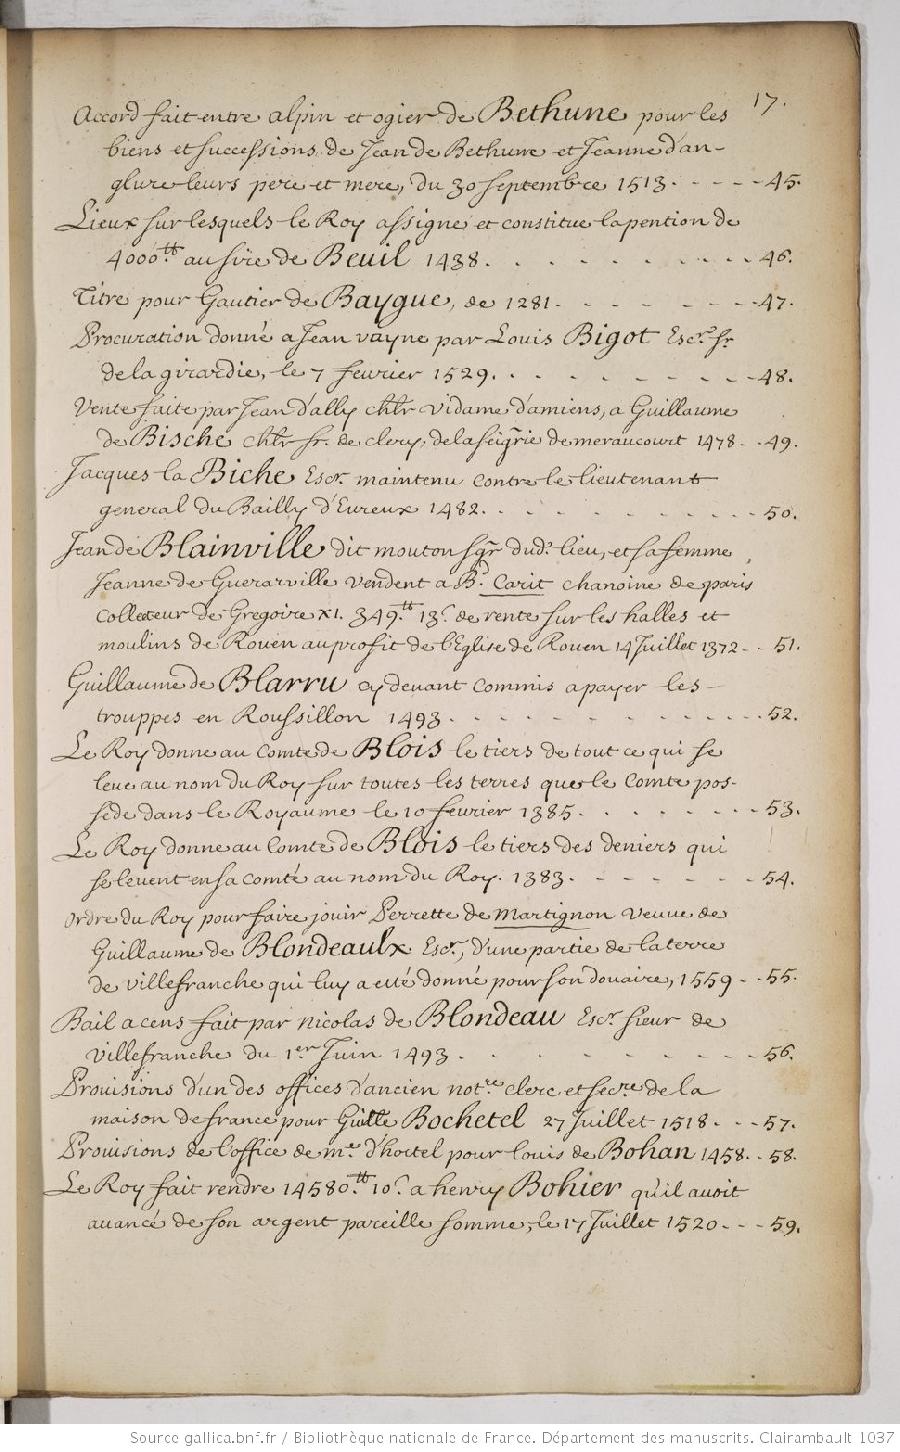 17.
Accord fait entre alpin et ogier de Bethune pour les
biens et successions de Jean de Bethune et Jeanne d'an-
glure leurs pere et mere, du 30 septembre 1513. - - - - 45.
Lieux sur lesquels le Roy assigne et constitue la pention de
4000.tt au sire de Beuil 1438. . . . . . . . . . . 46.
Titre pour Gautier de Baygue, de 1281. - - - - - - - 47.
Procuration donné a Jean vayne par Louis Bigot Escr. sr.
de la girardie, le 7 fevrier 1529. . . - - - - - - - 48.
Vente faite par Jean d'ally chlr vidame d'amiens, a Guillaume
de Bische chlr sr. de clery, de la seigrie de meraucourt 1478 - 49.
Jacques la Biche Escr. maintenu contre le lieutenant
general du Bailly d'Evreux 1482. . . . . . . . . . 50.
Jean de Blainville dit mouton sgr dud. lieu, et sa femme
Jeanne de Guerarville vendent a Bd. Carit chanoine de paris
collecteur de Gregoire XI. 349.tt 13.s de rente sur les halles et
moulins de Rouen au profit de l'Eglise de Rouen 14 Juillet 1372 - . 51.
Guillaume de Blarru cy devant commis a payer les
trouppes en Roussillon 1493. - - - - - - - - - - 52.
Le Roy donne au Comte de Blois le tiers de tout ce qui se
leve au nom du Roy sur toutes les terres que le Comte pos-
sede dans le Royaume le 10 fevrier 1385. . . . . . - - - 53.
Le Roy donne au Comte de Blois le tiers des deniers qui
se levent en sa comté au nom du Roy. 1383. - - - - - - 54.
Ordre du Roy pour faire jouir Perrette de Martignon veuve de
Guillaume de Blondeaulx Escr., d'une partie de la terre
de villefranche qui luy a eté donné pour son douaire, 1559 - . 55.
Bail a cens fait par Nicolas de Blondeau Escr sieur de
villefranche du 1.er Juin 1493 . . . . . . . . . 56.
Provisions d'un des offices d'ancien notre clerc et secre de la
maison de france pour Guille Bochetel 27 Juillet 1518. - - - 57.
Provisions de l'office de me. d'hostel pour louis de Bohan 1458. . 58.
Le Roy fait rendre 14580.tt 10.s a henry Bohier qu'il avoit
avancé de son argent pareille somme, le 17 Juillet 1520 - - - 59.
Source gallica.bnf.fr / Bibliothèque nationale de France. Département des manuscrits. Clairambault 1037